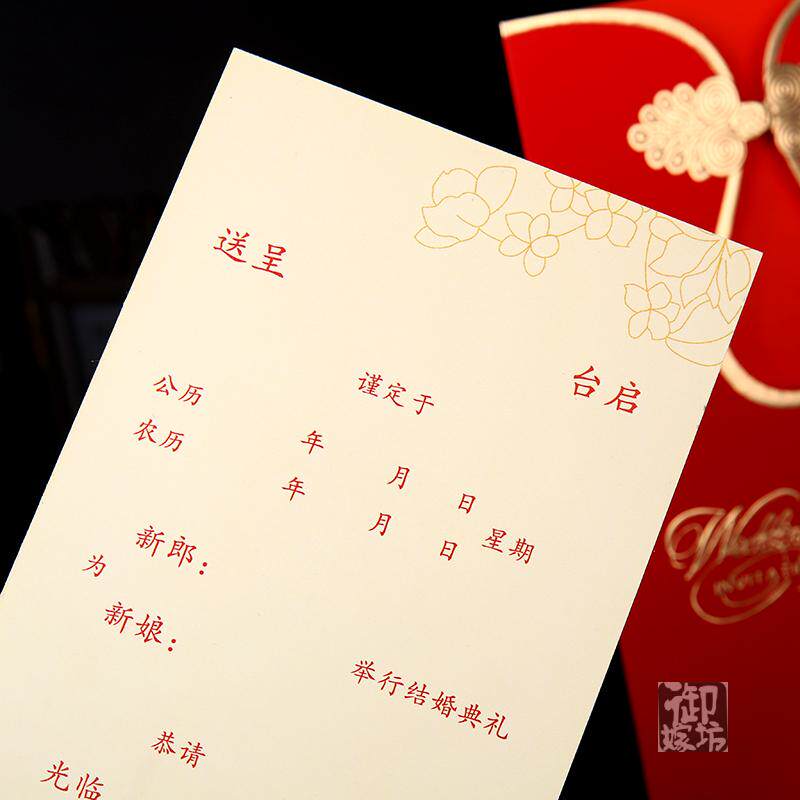 送呈
台启
谨定于
公历 年 月 日 星期
农历 年 月 日
新郎：
为
新娘：
举行结婚典礼
恭请
光临
Wedding
INVITA
御嫁坊